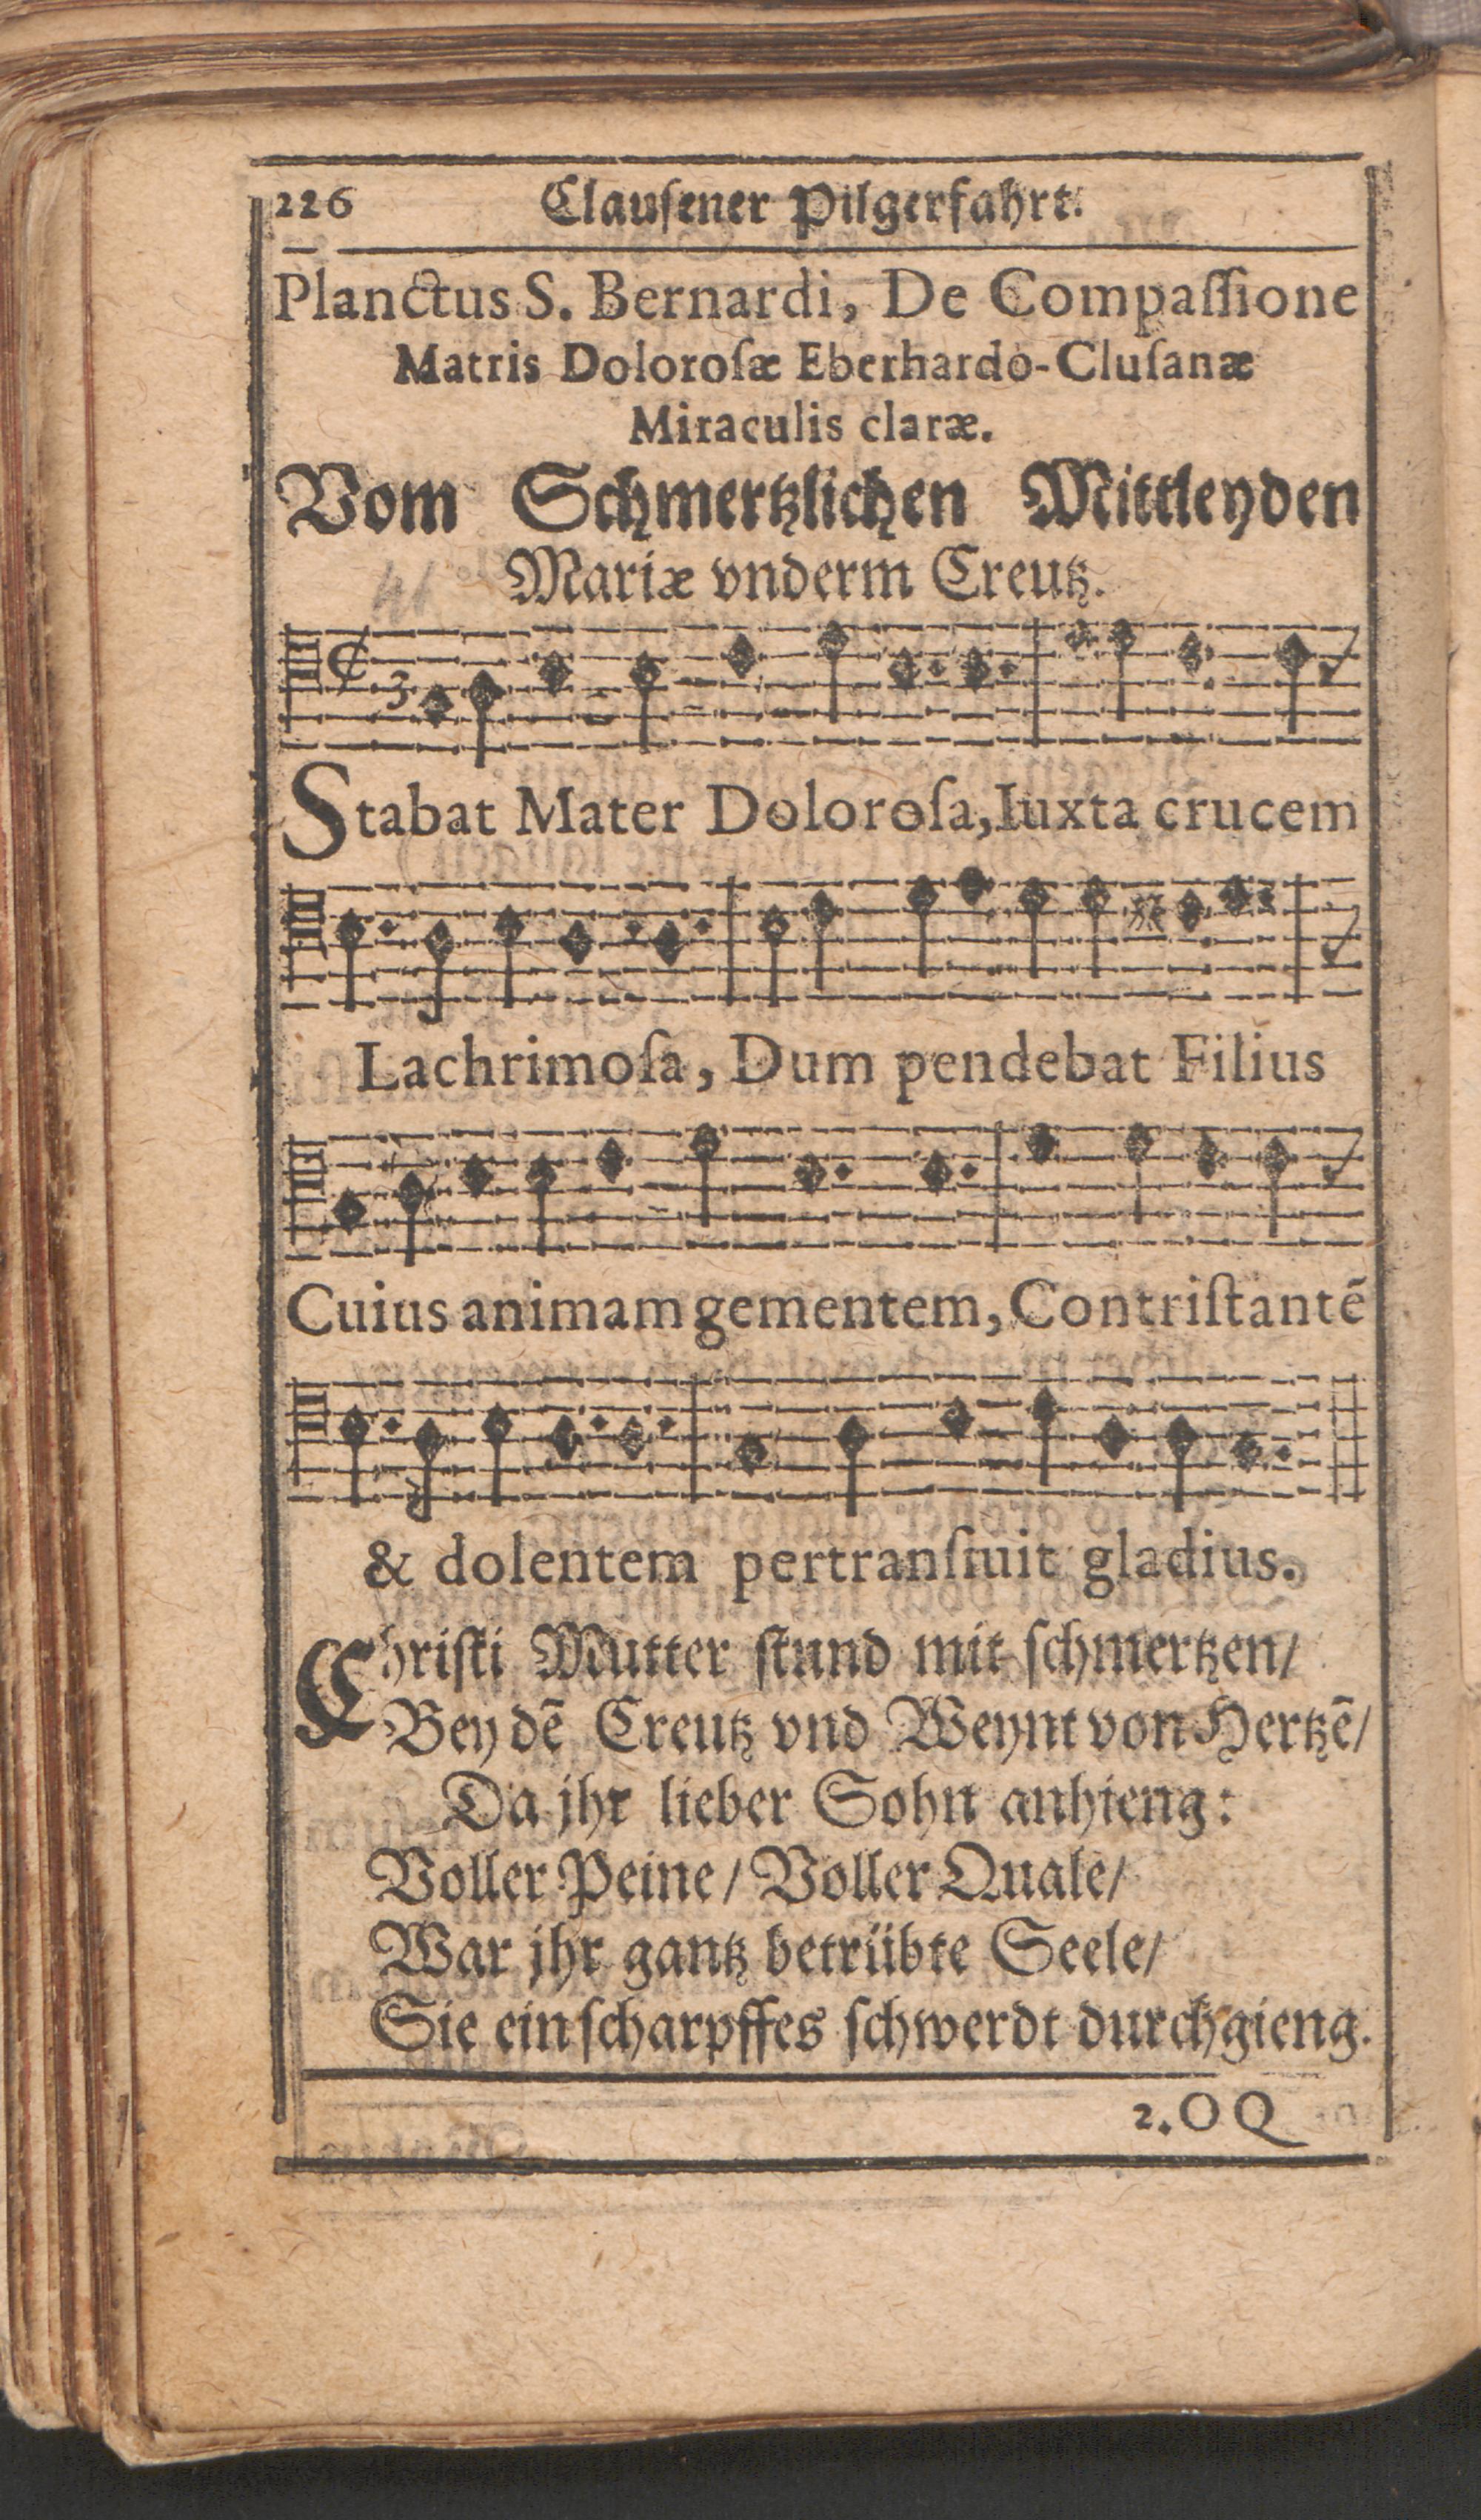 226 Clauſener Pilgerfahrt.
Planctus S. Bernardi, De Compaſſione
Matris Doloroſæ Eberhardo-Cluſanæ
Miraculis claræ.
Vom Schmertzlichen Mittleyden
Mariæ vnderm Creutz.
Stabat Mater Doloroſa, Iuxta crucem
Lachrimoſa, Dum pendebat Filius
Cuius animam gementem, Contriſtantē
& dolentem pertranſiuit gladius.
Chriſti Mutter ſtund mit ſchmertzen/
Bey dē Creutz vnd Weynt von Hertzē/
Da jhr lieber Sohn anhieng:
Voller Peine/ Voller Quale/
War jhr gantz betrübte Seele/
Sie ein ſcharpffes ſchwerdt durchgieng.
2. O Q